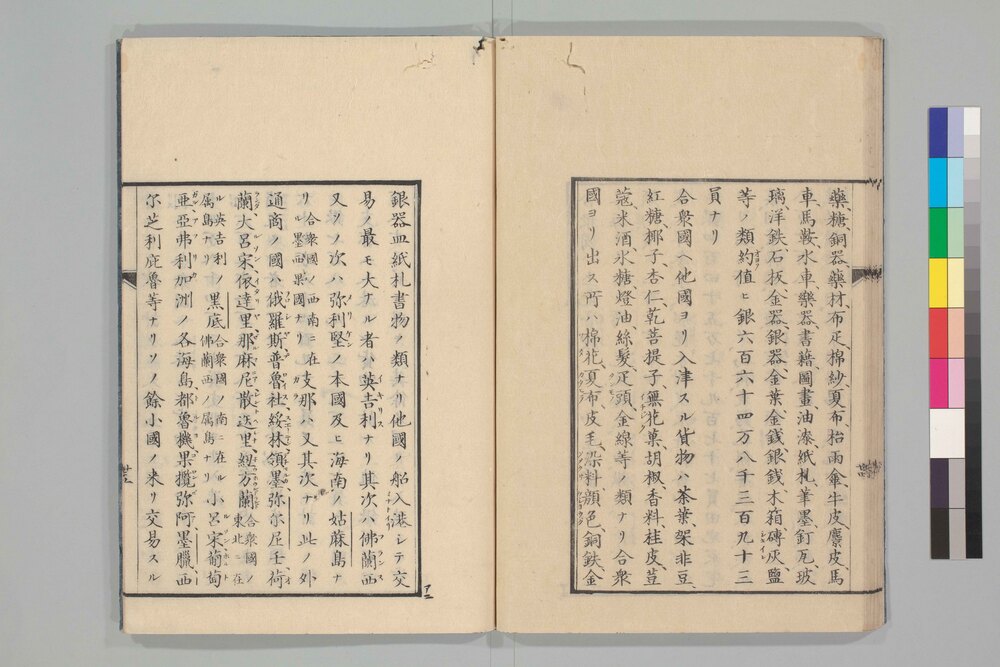 藥、糖、銅器、藥材、布疋、棉紗、夏布、枱、雨傘、牛皮、麖皮、馬
車、馬鞍、水車、樂器、書籍、圖畫、油漆、紙札、筆、墨、釘、瓦、玻
璃、洋鉄、石板、金器、銀器、金葉、金銭、銀銭、木箱、磚、灰、鹽
等ノ類約値ヒ銀六百六十四万八千三百九十三
員ナリ
合衆國ヘ他國ヨリ入津スル貨物ハ茶葉、架非豆、
紅糖、椰子、杏仁、乾菩提子、無花菓、胡椒、香料、桂皮、荳
蔲、米酒、氷糖、燈油、絲髮、疋頭、金線等ノ類ナリ合衆
國ヨリ出ス所ハ棉花、夏布、皮毛、染料、顔色、銅鉄、金
銀器皿、紙札書物ノ類ナリ他國ノ船入港シテ交
易ノ最モ大ナル者ハ英吉利ナリ其次ハ佛蘭西
又ソノ次ハ弥利堅ノ本國及ヒ海南ノ姑蘇島ナ
リ合衆國ノ西南ニ在ル墨西果國ナリ支那ハ又其次ナリ此ノ外
通商ノ國ハ俄羅斯、普魯社、綏林、領墨、弥尓尼壬、荷
蘭、大呂宋、依達里、那麻尼、散达里、紐方蘭合衆國ノ東北ニ在
ル英吉利ノ属島ナリ黒底合衆國ノ南ニ在ル佛蘭西ノ属島ナリ小呂宋、葡萄
亜、亞弗利加洲ノ各海島、都魯機、果攬弥、阿墨臘西
尓、芝利、庇魯等ナリソノ餘小國ノ来リ交易スル